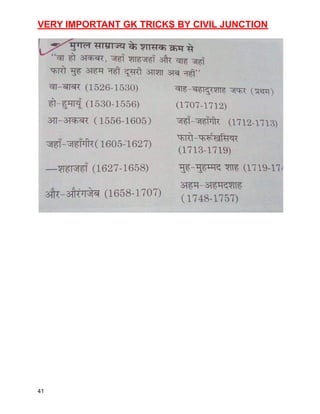 VERY IMPORTANT GK TRICKS BY CIVIL JUNCTION
मुगल साम्राज्य के शासक क्रम से
"वा हो अकबर, जहां शाहजहां और वाह जहां
फारो मुह अहम नहीं दूसरी आशा अब नहीं"
वा-बाबर (1526-1530)
हो-हुमायूँ (1530-1556)
आ-अकबर (1556-1605)
जहाँ-जहाँगीर (1605-1627)
—शहाजहाँ (1627-1658)
और-औरंगजेब (1658-1707)
वाह-बहादुरशाह जफर (प्रथम)
(1707-1712)
जहाँ-जहाँगीर (1712-1713)
फारो-फर्रूखसियर
(1713-1719)
मुह-मुहम्मद शाह (1719-174
अहम-अहमदशाह
(1748-1757)
41